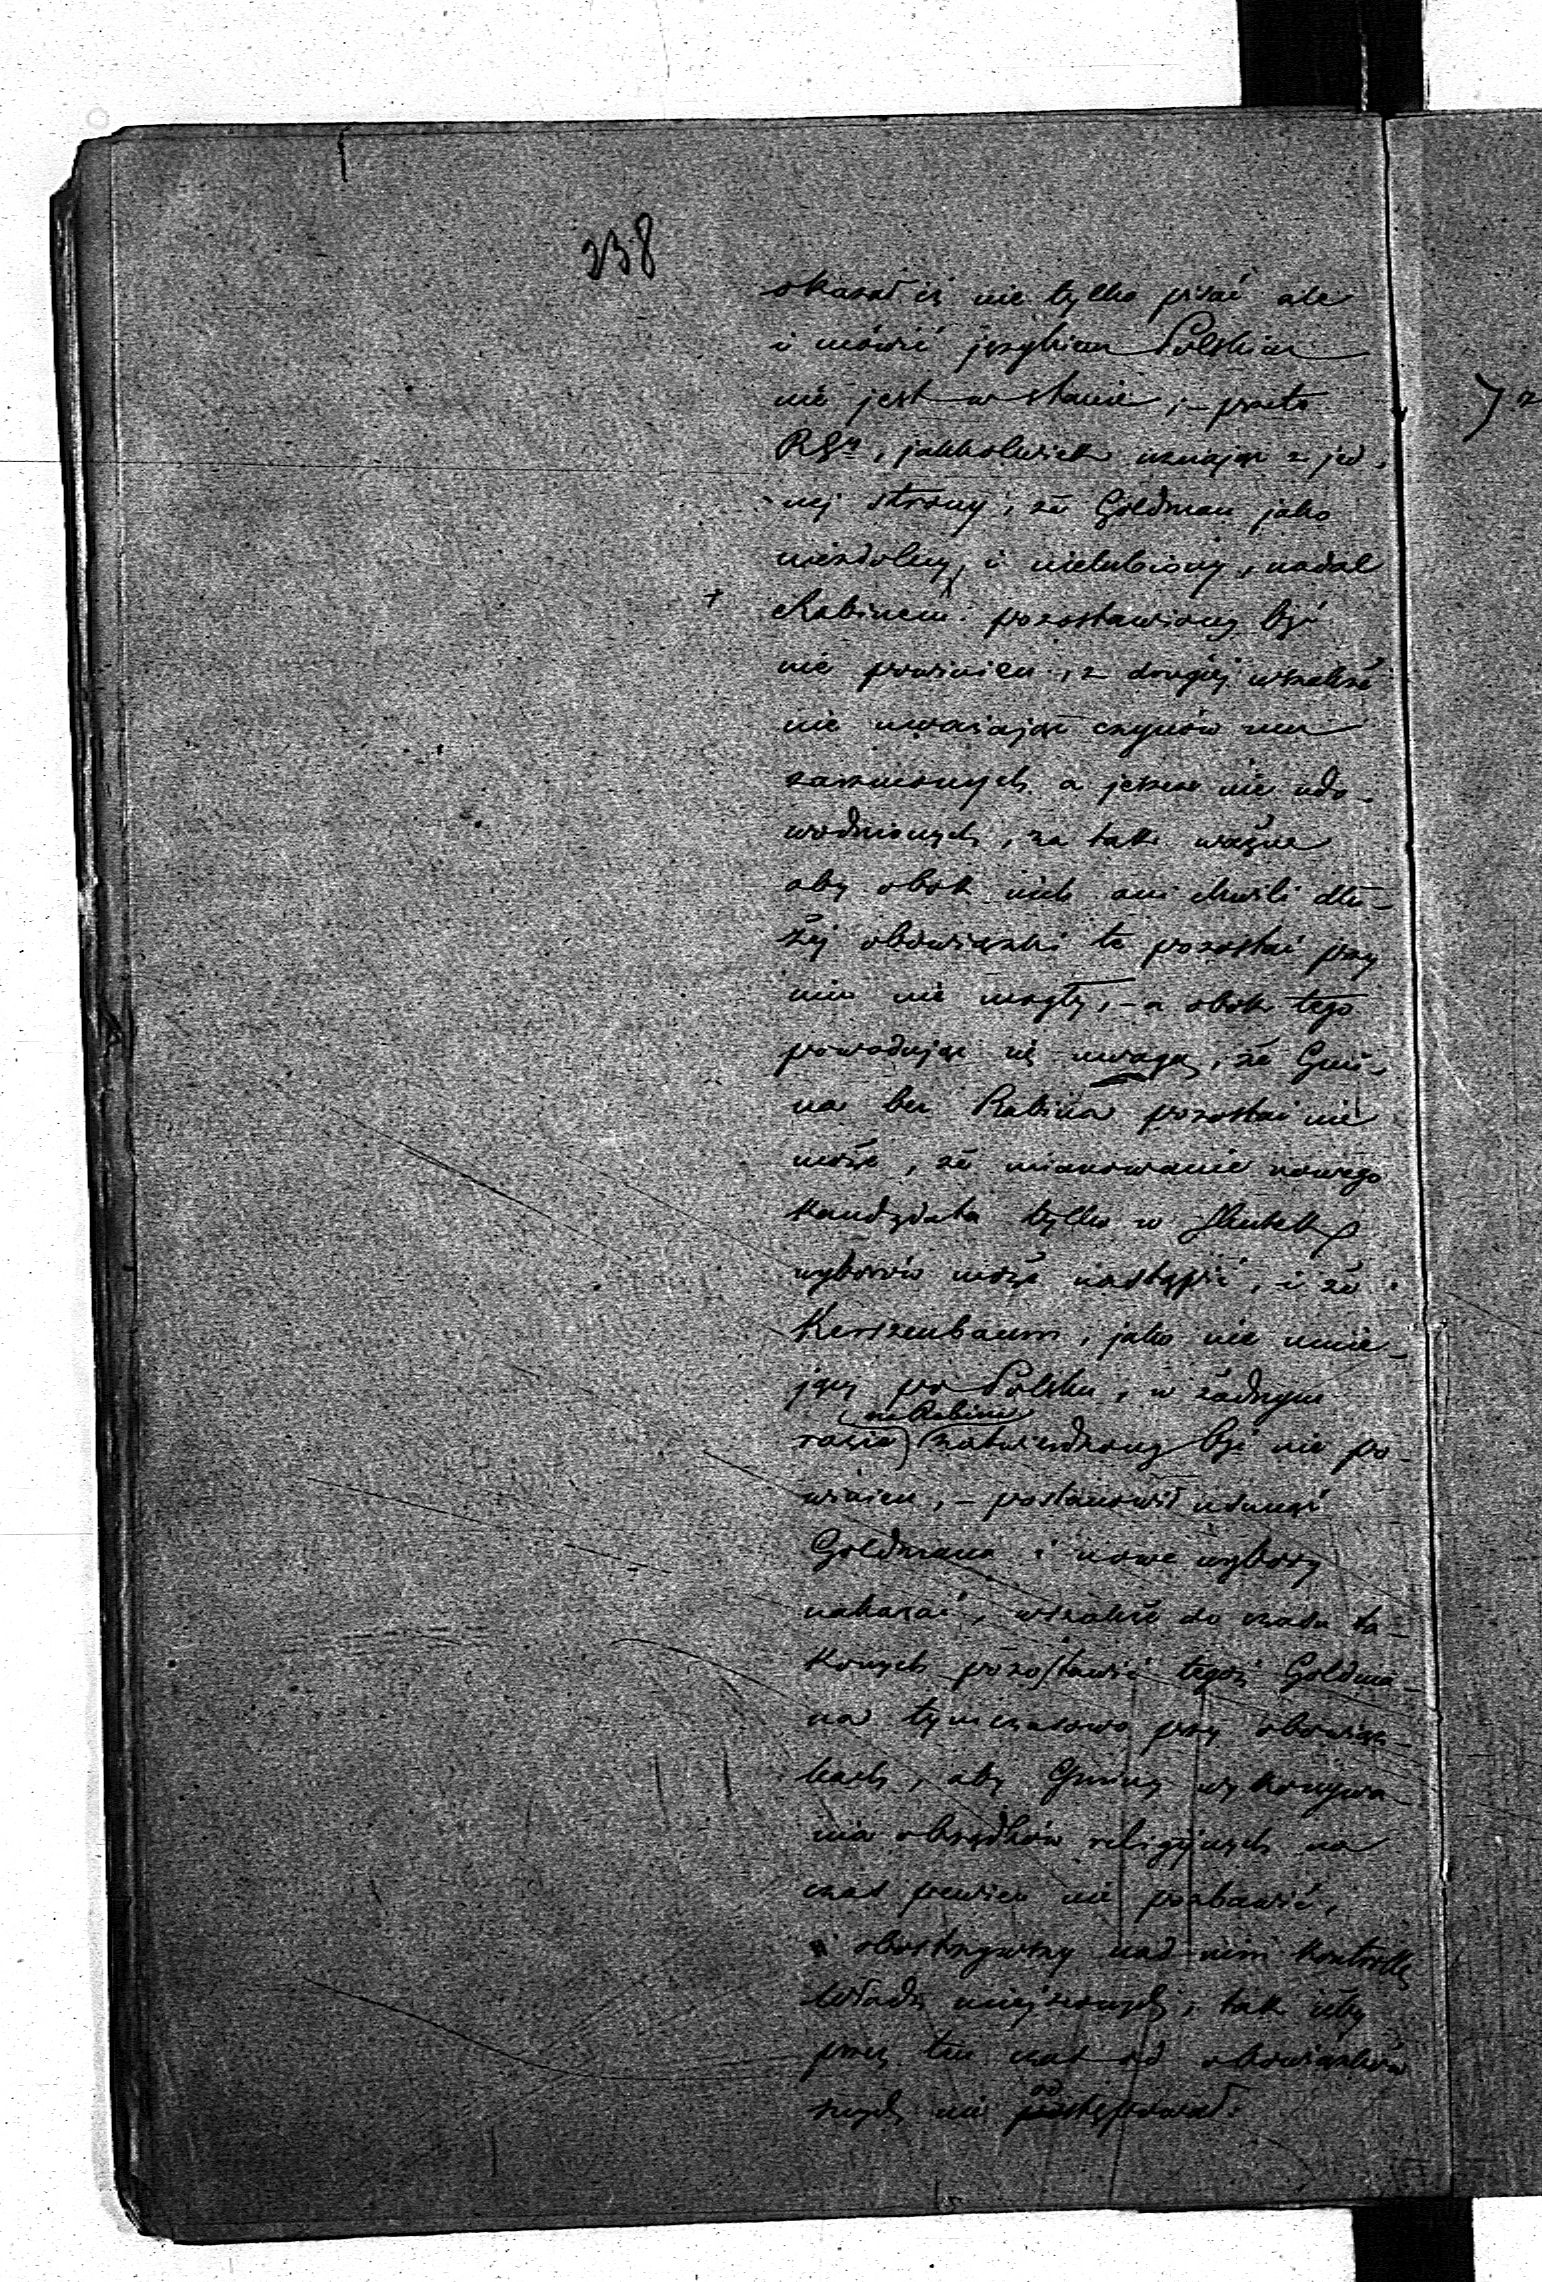 238
okazał się nie tylko pisać ale
i mówić językiem Polskim
nie jest w stanie, – przeto
, jakkolwiek uznając z jed-
nej strony, że Goldman jako
niezdolny, i nielubiony, nadal
Rabinem pozostawiony być
nie powinien, z drugiej wszakże
nie uważając czynów mu
zarzuconych a jeszcze nie udo-
wodnionych, za tak ważne
aby obok nich ani chwili dłu-
żej obowiązki te pozostać przy
nim nie mogły, – a obok tego
powodując się uwagą, że Gmi-
na bez Rabina pozostać nie
może, że mianowanie nowego
kandydata tylko w skutek
wyborów może nastąpić, i że
Kerszenbaum, jako nie umie-
jący po Polsku, w żadnym
na Rabina
razie zatwierdzony być nie po-
winien, – postanowił usunąć
Goldmana i nowe wybory
nakazać, wszakże do czasu ta-
kowych pozostawić tegoż Goldma-
na tymczasowo przy obowiąz-
kach, aby Gminy wykonywa-
nia obrządków religijnych na
czas pewien nie pozbawić,
i obostrzywszy nad nim kontrollę
Władz miejscowych, tak iżby
przez ten czas od obowiązków
swych nie odstępował.